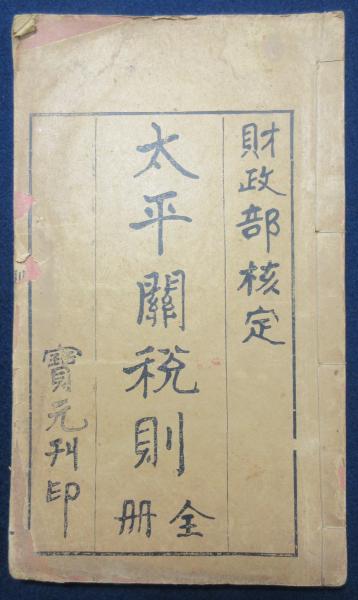 財政部核定
太平關稅則
全册
寶元刊印